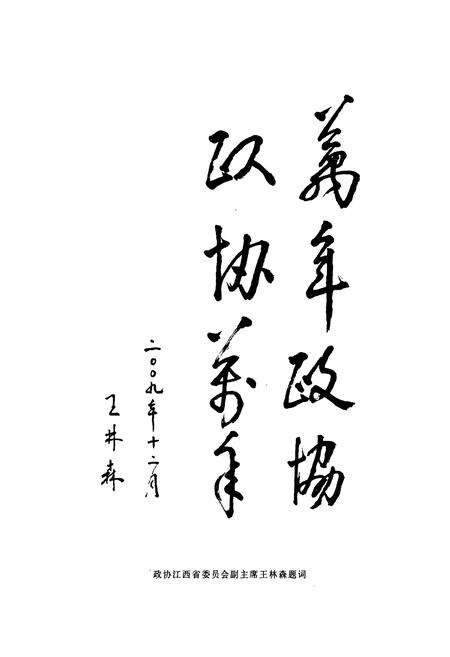 萬年政協
政协萬年
二〇〇九年十二月
王林森
政协江西省委员会副主席王林森题词